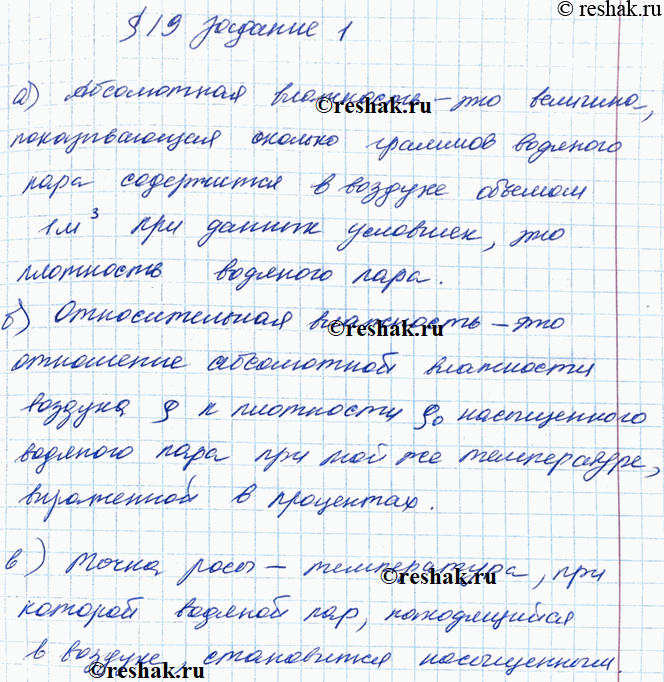 © reshak.ru
§19 задание 1
а) Абсолютная влажность – это величина,
©reshak.ru
показывающая сколько граммов водяного
пара содержится в воздухе объемом
1м³ при данных условиях, это
плотность водяного пара.
б) Относительная влажность – это
©reshak.ru
отношение абсолютной влажности
воздуха ρ к плотности ρ₀ насыщенного
водяного пара при той же температуре,
выраженной в процентах.
в) Точка росы – температура, при
©reshak.ru
которой водяной пар, находящийся
в воздухе, становится насыщенным.
©reshak.ru